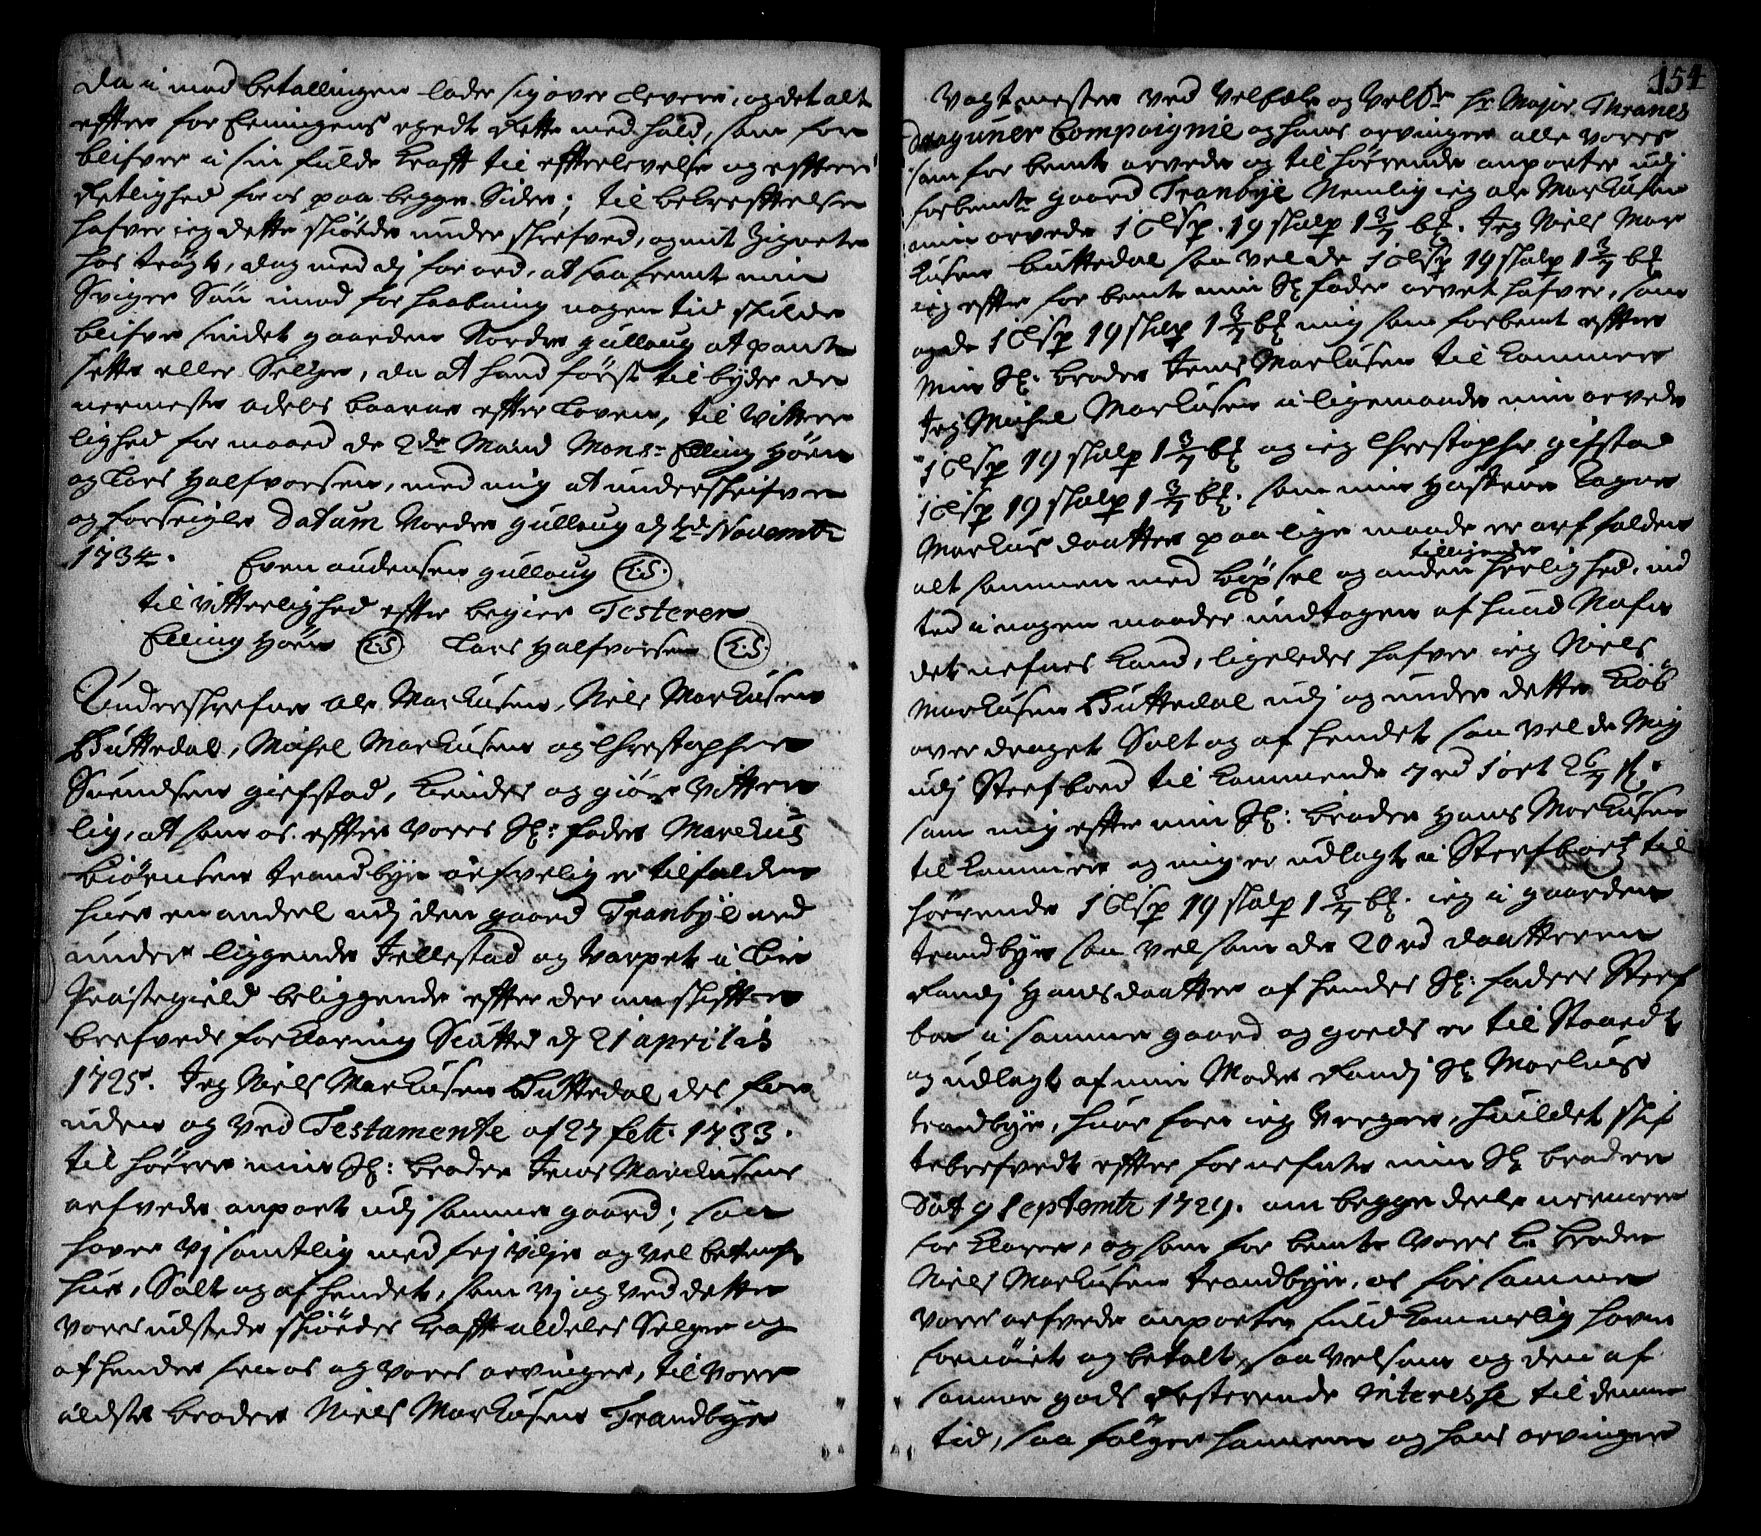 da i mod betallingen lader sig over levere, og det alt
effter for Eeningens egedt Rette med hold, som for
blifver i sin fulde Krafft til effterlevelse og effter
Retlighed fra os paa begge Sider; til bekrefftelse
hafver ieg dette skiøde under skrefved, og mit Zignete
hos trögt, dog med dj for ord, at saafremt min
Sviger Søn imod for haabning nogen tid skulde
blifve sindet gaarden Nordre gullaug at pant
sette eller Selge, da at hand først tilbyder de
nermeste odels baarne effter Loven, til Vitter
lighed for maaed de 2de Mænd Monsr Elling Höen
og Lars Halfvorsen, med mig at underskrifve
og forseigle Datum Nordre gullaug dj 2de Novembr
1734.
Even audensen gullaug (L.S.)
til vitterlighed effter begier Testerer
Elling Höen (L.S) Lars Halfvorsen (L.S.)
Underskrefne ole Markusen, Niels Markusen
Buttedal, Michel Markusen og Christopher
Svendsen giefstad, kiender og giør Vitter
lig, at som os effter vores Sl: fader Markus
Biörensen trandbye arfvelig er tilfalden
huer en andeel udj den gaard Tranbye med
under liggende Jellestad og Varpet i Lier
Præstegield beliggende effter der om skiffte
brefveds forklaring Sluttet dj 21 aprilis
1725. Jeg Niels Markusen Buttedal des for
uden og ved Testamente af 27 febr. 1733.
til hörer min Sl: broder Jens Markusens
arfvede anpart udj samme gaard; saa
haver vj samtlig med frj vilje og vel betænkt
hue, Solt og af hendet, som vj og ved dette
vores udstede skiödes krafft aldeles Selger og
af hender fra os og vores arvinger, til vores
eldste broder Niels Markusen Trandbye
154
Vagtmester ved Velbaln og Velbr hr Major Thranes
draguner Compagnie og hans arvinger alle vores
som for bemte arvede og til hörende anparter udj
forbemte gaard Tranbye Nemlig ieg ole Markusen
min arvede 1 Lispd. 19 skalp 1 3/7 bl. Jeg Niels Mar
kusen buttedal saa vel de 1 Lispd 19 skalp 1 3/7 bl
ieg effter for bemte min Sl fader arvet hafver, som
og de 1 Lispd 19 skalp 1 3/7 bl mig som forbemt effter
min Sl: broder Jens Markusen til kommer
Jeg Michel Markusen i ligemaade min arvede
1 Lispd 19 skalp 1 3/7 bl og ieg Christopher gifstad
1 Lispd 19 skalp 1 3/7 bl. som min Hustrue Dagne
Markusdaatter paa lige maade er arf falden
alt sammen med böxsel og anden tilligende herlighed, in
ted i nogen maade undtagen af huad Nafn
det nefnes kand, ligeledes hafver ieg Niels
Markusen Buttedal udj og under dette kiöb
over draget Solt og af hendet saa vel de Mig
udj Sterfboed til kommende 7 rd 1 ort 2 6/7 s.
som mig effter min Sl: broder Hans Markusen
til kommer og mig er udlagt i Sterfboet til
hörende 1 Lispd 19 skalp 1 3/7 bl. ieg i gaarden
trandbye saa vel som de 20 rd daatteren
Randj Hansdaatter af hendes Sl: faders Sterf
boe i samme gaard og goeds er til Staaedt
og udlagt af min Moder Randj Sl Markus
trandbye, huor for ieg Verger, huilcket skif
tebrefvedt effter for nefnte min Sl broder
Dat 9 Septembr 1729. om begge deele nermere
for klarer, og som for bemte Vores k. broder
Niels Markusen trandbye, os for samme
vores arfvede anparter fuldkommelig haver
fornöiet og betalt, saa velsom og den af
samme gods Resterende interesse til denne
tid, saa fölger hannem og hans arvinger